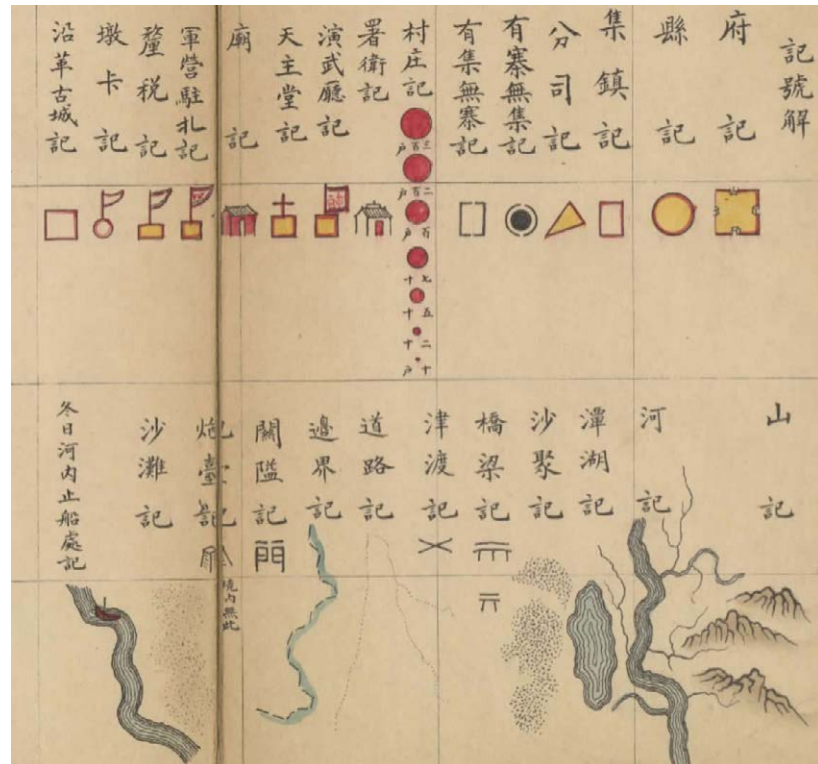 記號解
府記
縣記
集鎮記
分司記
有寨無集記
有集無寨記
村庄記
三百戶
二百戶
百戶
七十
五十
二十
十戶
署衛記
演武廳記
天主堂記
廟記
軍營駐札記
釐税記
墩卡記
沿革古城記
山記
河記
潭湖記
沙聚記
橋梁記
津渡記
道路記
邊界記
關隘記
境内無此
炮臺記
沙灘記
冬日河内止船處記